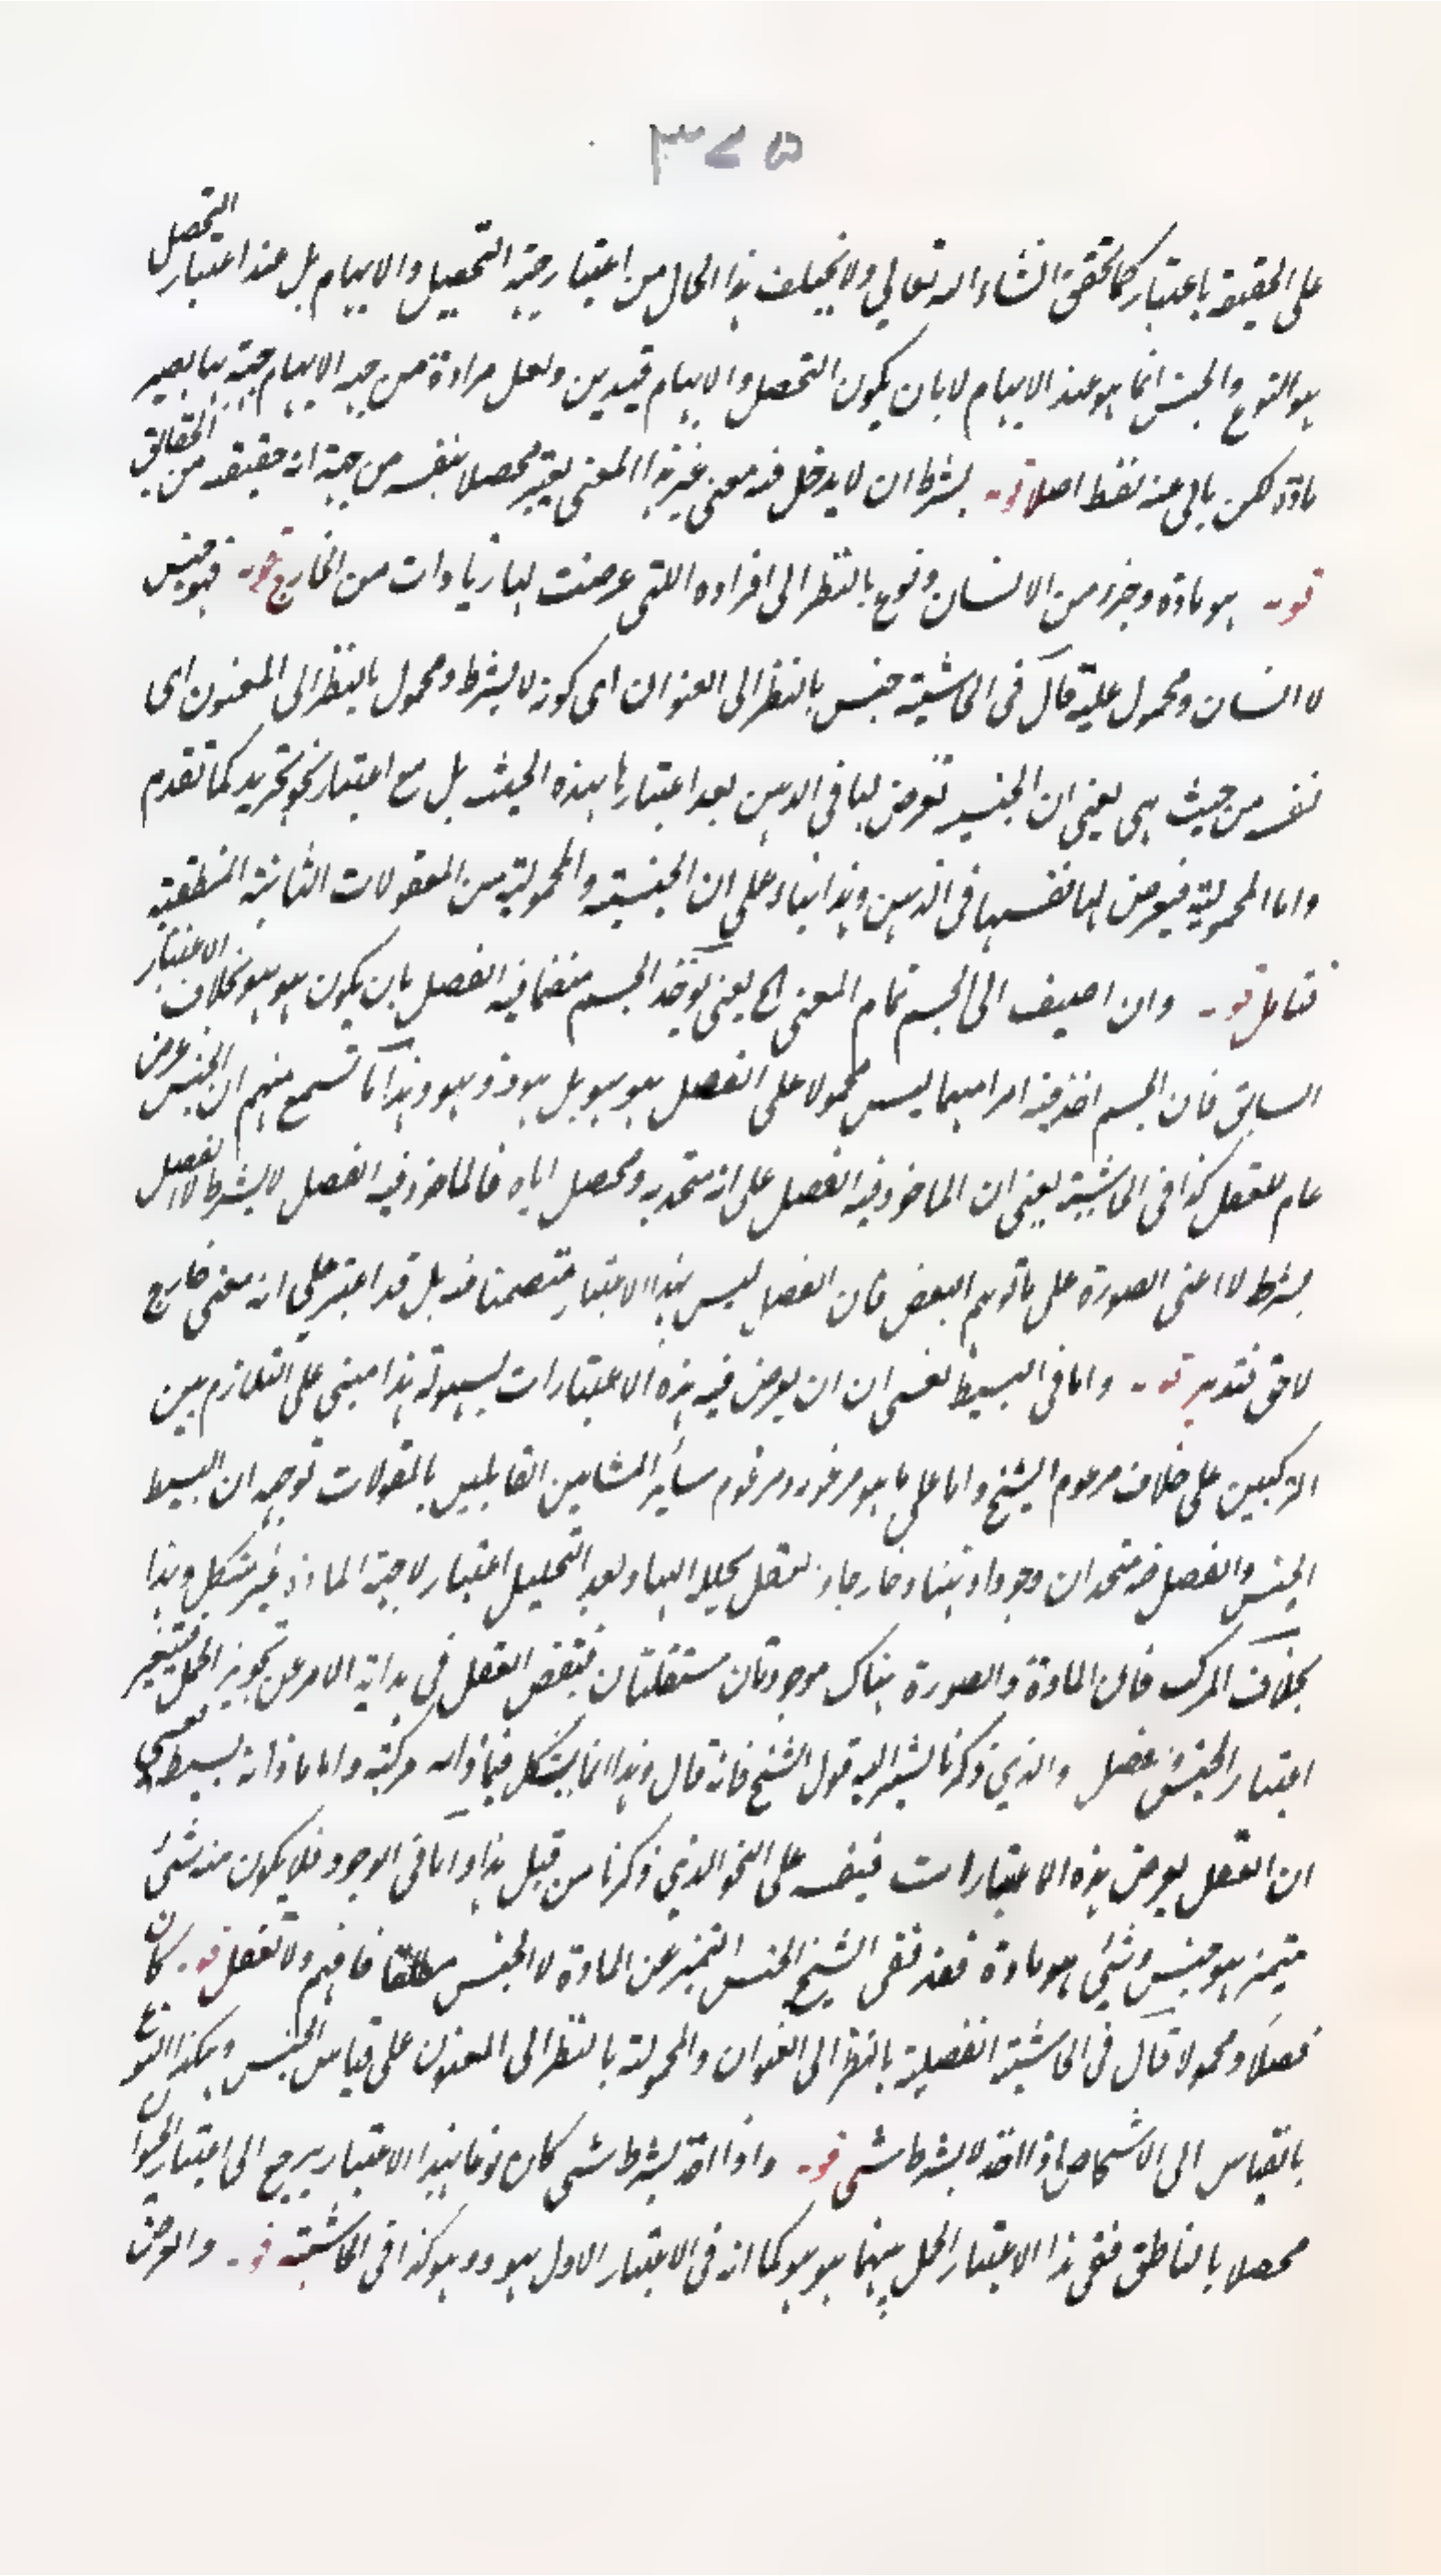 ٣٧٥
على الحقيقة باعتبار كما تحقق انشاء الله تعالى ولا يختلف هذا الحال من اعتبار جهة التحصيل والابهام بل عند اعتبار التحصل
هو النوع والجنس انما هو عند الابهام لا بان يكون التحصل والابهام قيدين ولعل مراده من جهة الابهام جهة بها يصير
مادة لكن بابى عنه لفظ اصلا قوله بشرط ان لا يدخل فيه معنى غير هذا المعنى يعتبر محصلا بنفسه من جهة انه حقيقة من الحقائق
قوله هو مادة وجزء من الانسان ونوع بالنظر الى افراده اللتى عرضت لها زيادات من الخارج قوله فهو جنس
لا انسان ومحمول عليه قال فى الحاشية جنس بالنظر الى العنوان اى كونه لا بشرط ومحمول بالنظر الى المعنون اى
نفسه من حيث هى يعنى ان الجنسية تعرض لها فى الذهن بعد اعتبارها بهذه الحيث بل مع اعتبار نحو تجريد كما تقدم
واما المحمولية فيعرض لها نفسها فى الذهن وهذا بناء على ان الجنسية والمحمولية من المعقولات الثانية المنطقية
فتامل قوله وان اضيف الى الجسم تمام المعنى الخ يعنى يوخذ الجسم منضما فيه الفصل بان يكون هو هو بخلاف الاعتبار
السابق فان الجسم اخذ فيه امرا مبهما ليس محمولا على الفصل هو هو بل هو ذو هو وهذا ما تسمع منهم ان الجنس عرض
عام للفصل كذا فى الحاشية يعنى ان الماخوذ فيه الفصل على انه متحد به ومحصل اياه فالماخوذ فيه الفصل لا بشرط لا الفصل
بشرط لا اعنى الصورة على ما توهم البعض فان الفصل ليس بهذا الاعتبار متضمنا فيه بل قد اعتبر على انه معنى خارج
لاحق فتدبر قوله واما فى البسيط فعسى ان ان يعرض فيه هذه الاعتبارات بسهولة هذا مبنى على التلازم بين
التركيبين على خلاف مزعوم الشيخ واما على ما هو مزعومه ومزعوم سائر المشائين القائلين بالمقولات توجيه ان البسيط
الجنس والفصل فيه متحدان وجودا ذهنا وخارجا والعقل يحلله اليها وبعد التحليل اعتبار لا جهة المادة غير مشكل وهذا
بخلاف المركب فان المادة والصورة هناك موجودتان مستقلتان فيتقبض العقل فى بداية الامر عن تجويز الحمل فيتعسر
اعتبار الجنس والفصل والذى ذكرنا يشير اليه قول الشيخ فانه قال وهذا انما يشكل فيما ذاته مركبة واما ما ذاته بسيط فعسى
ان العقل يعرض هذه الاعتبارات فينفسه على النحو الذى ذكرنا من قبل هذا واما فى الوجود فلا يكون منه شئ
متميز هو جنس وشئ هو مادة فقد نفى الشيخ الجنس التميز عن المادة لا الجنس مطلقا فافهم ولا تغفل قوله كان
فصلا ومحمولا قال فى الحاشية الفصلية بالنظر الى العنوان والمحمولية بالنظر الى المعنون على قياس الجنس وهكذا النوع
بالقياس الى الاشخاص اذا اخذ لا بشرط شى قوله واذا اخذ بشرط شى كان نوعا بهذا الاعتبار يرجع الى اعتبار الحيوان
محصلا بالناطق ففى هذا الاعتبار الحمل بينهما هو هو كما انه فى الاعتبار الاول هو ذو هو كذا فى الحاشية قوله والعرض